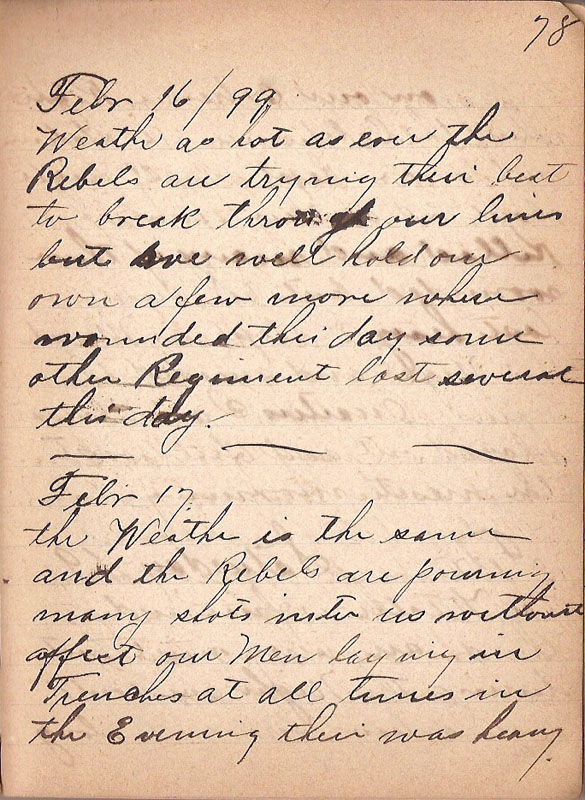 78
Febr 16/99
Weath as hot as ever the
Rebels are trying their best
to break through our lines
but we well hold our
own a few more where
wounded this day some
other Regiment lost several
this day.
Febr 17
the Weathe is the same
and the Rebels are pouring
many shots into us without
affect our Men laying in
Trenches at all times in
the Evening their was heavy